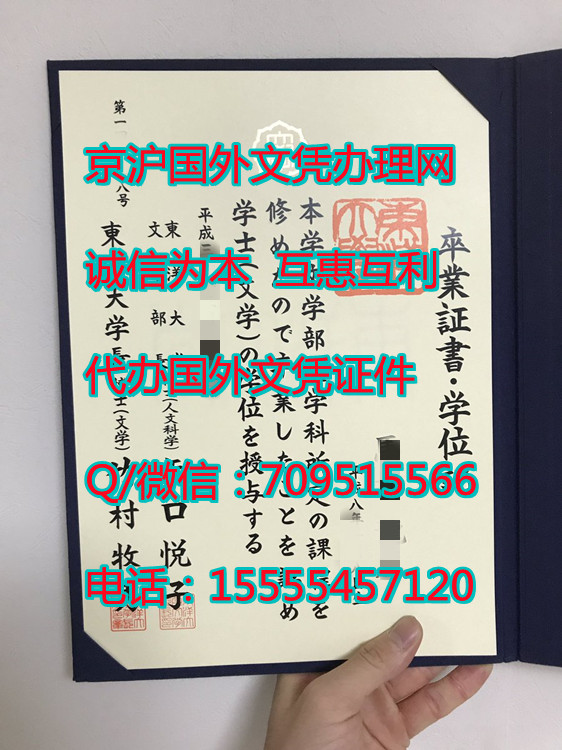 京沪国外文凭办理网
诚信为本 互惠互利
代办国外文凭证件
Q/微信：709515566
电话：15555457120
卒業証書・学位
本学 学部 学科所定の課 を
修め ので 業したことを め
学士(文学)の学位を授与する
平成
平成八年
東洋大
文 部 長 (人文科学) 口悦子
東 大学長 士(文学) 村牧
第一 八号